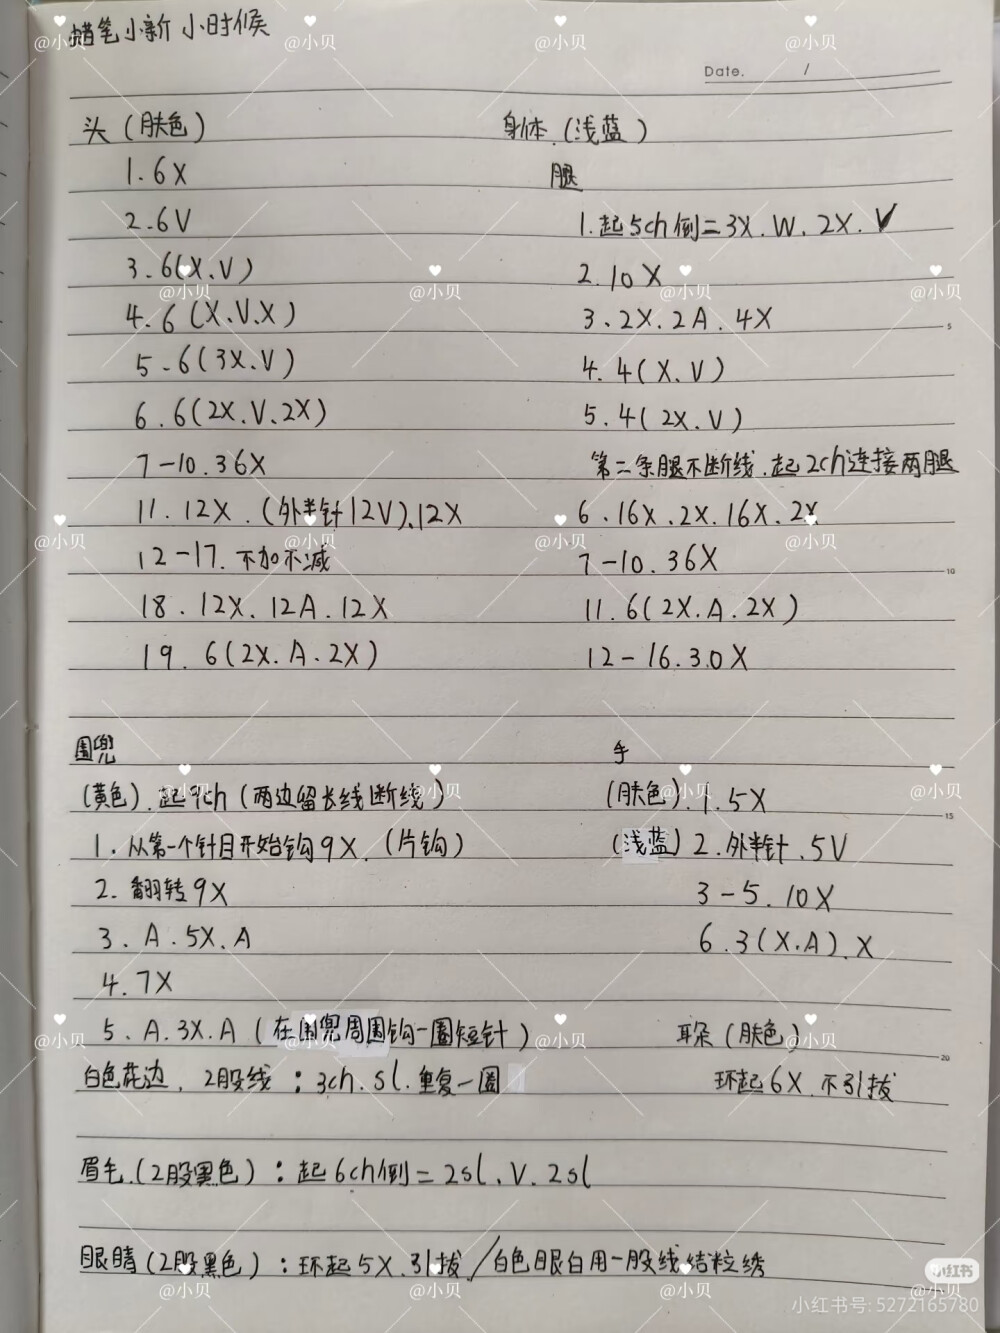 蜡笔小新 小时候
Date. /
头（肤色）
1. 6X
2. 6V
3. 6(X.V)
4. 6(X.V.X)
5. 6(3X.V)
6. 6(2X.V.2X)
7-10. 36X
11. 12X.（外半针12V）.12X
12-17. 不加不减
18. 12X. 12A. 12X
19. 6(2X.A.2X)
身体.（浅蓝）
腿
1. 起5ch倒二3X. W. 2X. V
2. 10X
3. 2X. 2A. 4X
4. 4(X.V)
5. 4(2X.V)
第二条腿不断线.起2ch连接两腿
6. 16X. 2X. 16X. 2X
7-10. 36X
11. 6(2X.A.2X)
12-16. 30X
围兜
（黄色）.起9ch（两边留长线断线）
1. 从第一个针目开始钩9X.（片钩）
2. 翻转9X
3. A. 5X. A
4. 7X
5. A. 3X. A（在围兜周围钩一圈短针）
白色花边. 2股线：3ch. sl. 重复一圈
手
（肤色）. 1. 5X
（浅蓝）2. 外半针. 5V
3-5. 10X
6. 3(X.A). X
耳朵（肤色）
环起6X. 不引拔
眉毛.（2股黑色）：起6ch倒二2sl. V. 2sl
眼睛（2股黑色）：环起5X. 引拔/白色眼白用一股线结粒绣
@小贝
小红书
小红书号: 5272165780